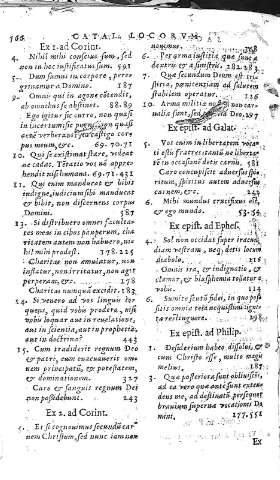 CATAL. LOCORVM
Ex 1. ad Corint.
4. Nihil mihi conscius sum, sed
non in hoc iustificatus sum. 591
5. Dum sumus in corpore, peregrinamur
a Domino. 187
9. Omnis qui in agone côtendit,
ab omnibus se abstinet. 88.89
Ego igitur sic curro, non quasi
in incertum: sic pugno, non quasi
aerē verberans: sed castigo corpus
meum, &c. 69.70.71
10. Qui se existimat stare, videat
ne cadat. Tētatio vos nō apprehendit
nisi humana. 69.71.431
11. Qui enim manducat & bibit
indignè, iudicium sibi manducat
& bibit, non discernens corpus
Domini. 587
13. Si distribuero omnes facultates
meas in cibos pauperum, charitatem
autem non habuero, nihil
mihi prodest. 178.225
Charitas non aemulatur, non
inflatur, non irritatur, non agit
perperam, &c. 178
Charitas nunquā excidet. 183
14. Si venero ad vos linguis loquens,
quid vobis prodero, nisi
vobis loquar aut in reuelatione,
aut in scientia, aut in prophetia,
aut in doctrina? 443
15. Cum tradiderit regnum Deo
& patri, cum euacuauerit omnem
principatū, & potestatem,
& dominationem. 327
Caro & sanguis regnum Dei
non possidebunt. 243
Ex 2. ad Corint.
4. Et si cognouimus secundū carnem
Christum, sed nunc iam non
nouimus.
6. Per arma iustitiae, quae sunt a
dextris & a sinistris. 282.283
7. Quae secundum Deum est tristitia,
poenitentiam ad salutem
stabilem operatur. 126
10. Arma militiae nostrae non carnalia
sunt, sed
Ex epist. ad Galat.
5. Vos enim in libertatem vocati
estis fratres: tantū ne libertatē
in occasionē detis carnis. 581
Caro concupiscit aduersus spiritum,
spiritus autem aduersus
carnem, &c.
6. Mihi mundus crucifixus est,
& ego mundo. 53.54
Ex epist. ad Ephes.
4. Sol non occidat super iracundiam
vestram, neq; detis locum
diabolo.
Omnis ira, & indignatio, &
clamor, & blasphemia tollatur a
vobis.
6. Sumite scutū fidei, in quo possitis
omnia tela nequissimi ignea
extinguere.
Ex epist. ad Philip.
1. Desiderium habeo dissolui, &
cum Christo esse, multo magis
melius. 187
3. Quae posteriora sunt obliuiscēs,
ad ea vero quae ante sunt extendens
me, ad destinatū persequor
brauium supernae vocationis Domini.
177.551
Ex